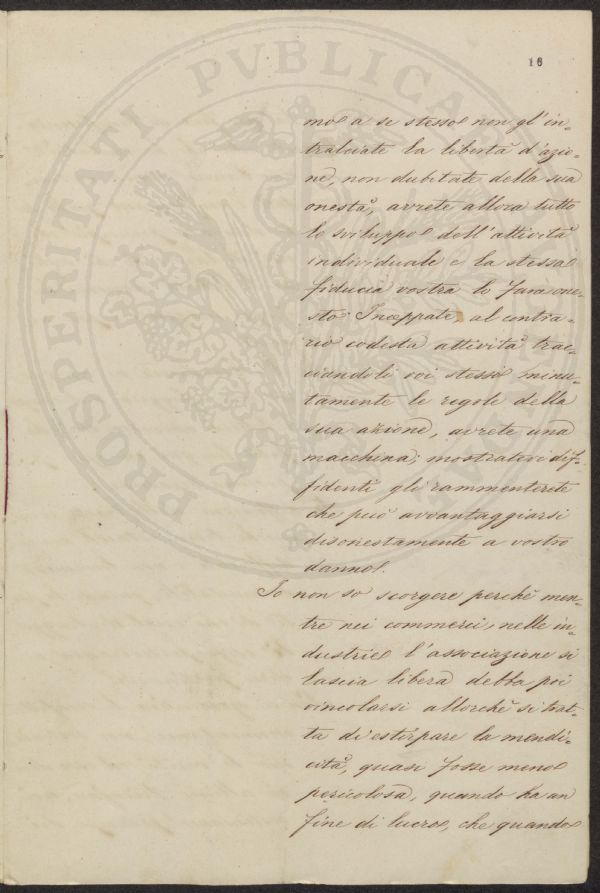 16
PROSPERITATI PVBLICAE
mo a se stesso non gl'in=
tralciate la libertà d'azio=
ne, non dubitate della sua
onestà, avrete allora tutto
lo sviluppo dell'attività
individuale e la stessa
fiducia vostra lo farà one=
sto. Inceppate, al contra=
rio codesta attività, trac=
ciandoli voi stessi minu=
tamente le regole della
sua azione, avrete una
macchina; mostratevi dif=
fidenti gli rammenterete
che può avvantaggiarsi
disonestamente a vostro
danno.
Io non so scorgere perchè men=
tre nei commerci, nelle in=
dustrie l'associazione si
lascia libera debba poi
vincolarsi allorchè si trat=
ta di estirpare la mendi=
cità, quasi fosse meno
pericolosa, quando ha un
fine di lucro, che quando